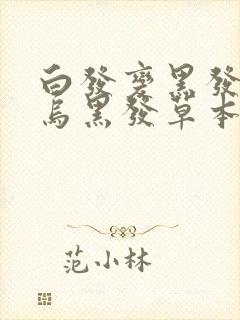 白發變黑發
烏黑發草本
范小林